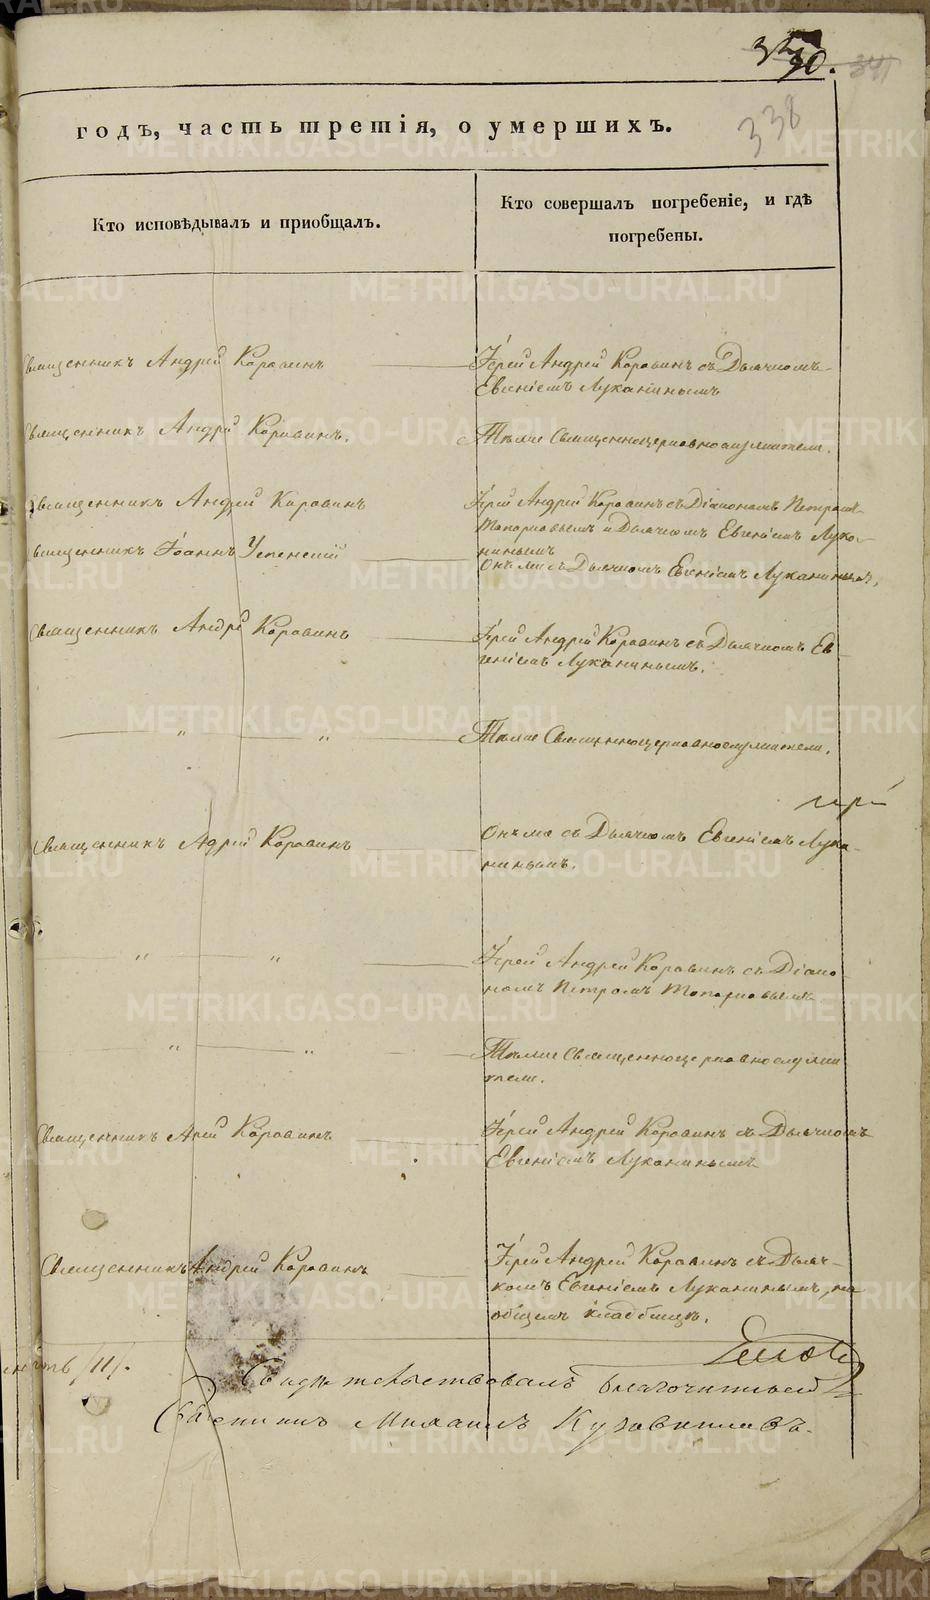 338
годъ, часть третія, о умершихъ.
Кто исповѣдывалъ и пріобщалъ.
Кто совершалъ погребеніе, и гдѣ
погребены.
Священникъ Андрей Коровинъ
Іерей Андрей Коровинъ съ Дьячкомъ
Евгеніемъ Луканинымъ
Священникъ Андрей Коровинъ.
Тѣже Священноцерковнослужители.
Священникъ Андрей Коровинъ
Іерей Андрей Коровинъ съ Діакономъ Петромъ
Топорковымъ и Дьячкомъ Евгеніемъ Лука-
нинымъ
Священникъ Іоаннъ Успенскій
Онъ же съ Дьячкомъ Евгеніемъ Луканинымъ.
Священникъ Андрей Коровинъ
Іерей Андрей Коровинъ съ Дьячкомъ Ев-
геніемъ Луканинымъ.
" "
Тѣже Священноцерковнослужители.
Священникъ Адрей Коровинъ
Онъ же съ Дьячкомъ Евгеніемъ Лука-
нинымъ.
" "
Іерей Андрей Коровинъ съ Діако-
номъ Петромъ Топорковымъ
" "
Тѣже Священноцерковнослужи
тели.
Священникъ Арей Коровинъ
Іерей Андрей Коровинъ съ Дьячкомъ
Евгеніемъ Луканинымъ
Священникъ Андрей Коровинъ
Іерей Андрей Коровинъ съ Дьяч-
комъ Евгеніемъ Луканинымъ, на
общемъ кладбищѣ.
Свидѣтельствовалъ благочинный
Священникъ Михаилъ
METRIKI.GASO-URAL.RU